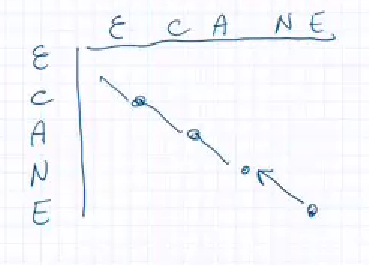 ε C A N E
ε
C
A
N
E